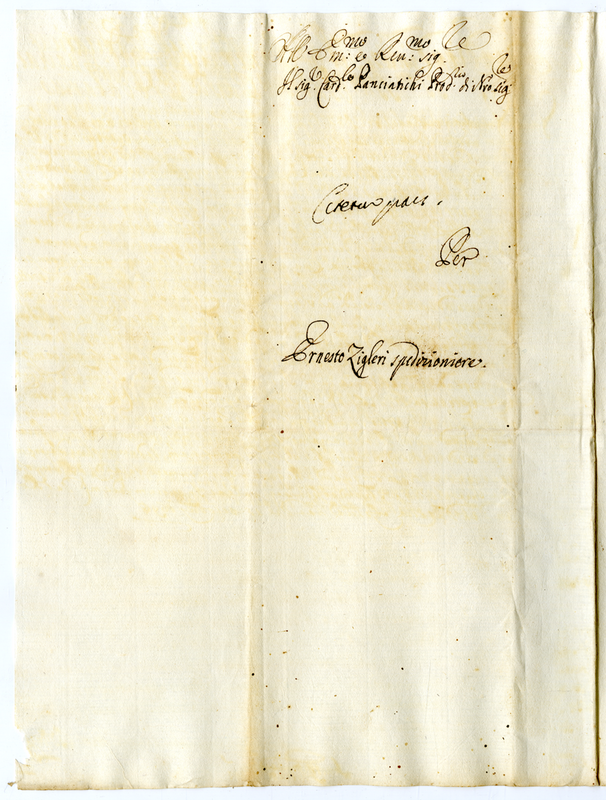 All Emo: e Reu:mo sig.re
Il sig.r Card.le Panciatichi Prod.rio di Nro sig.re
Citetur pars.
Per
Ernesto Zigleri spedizioniere.